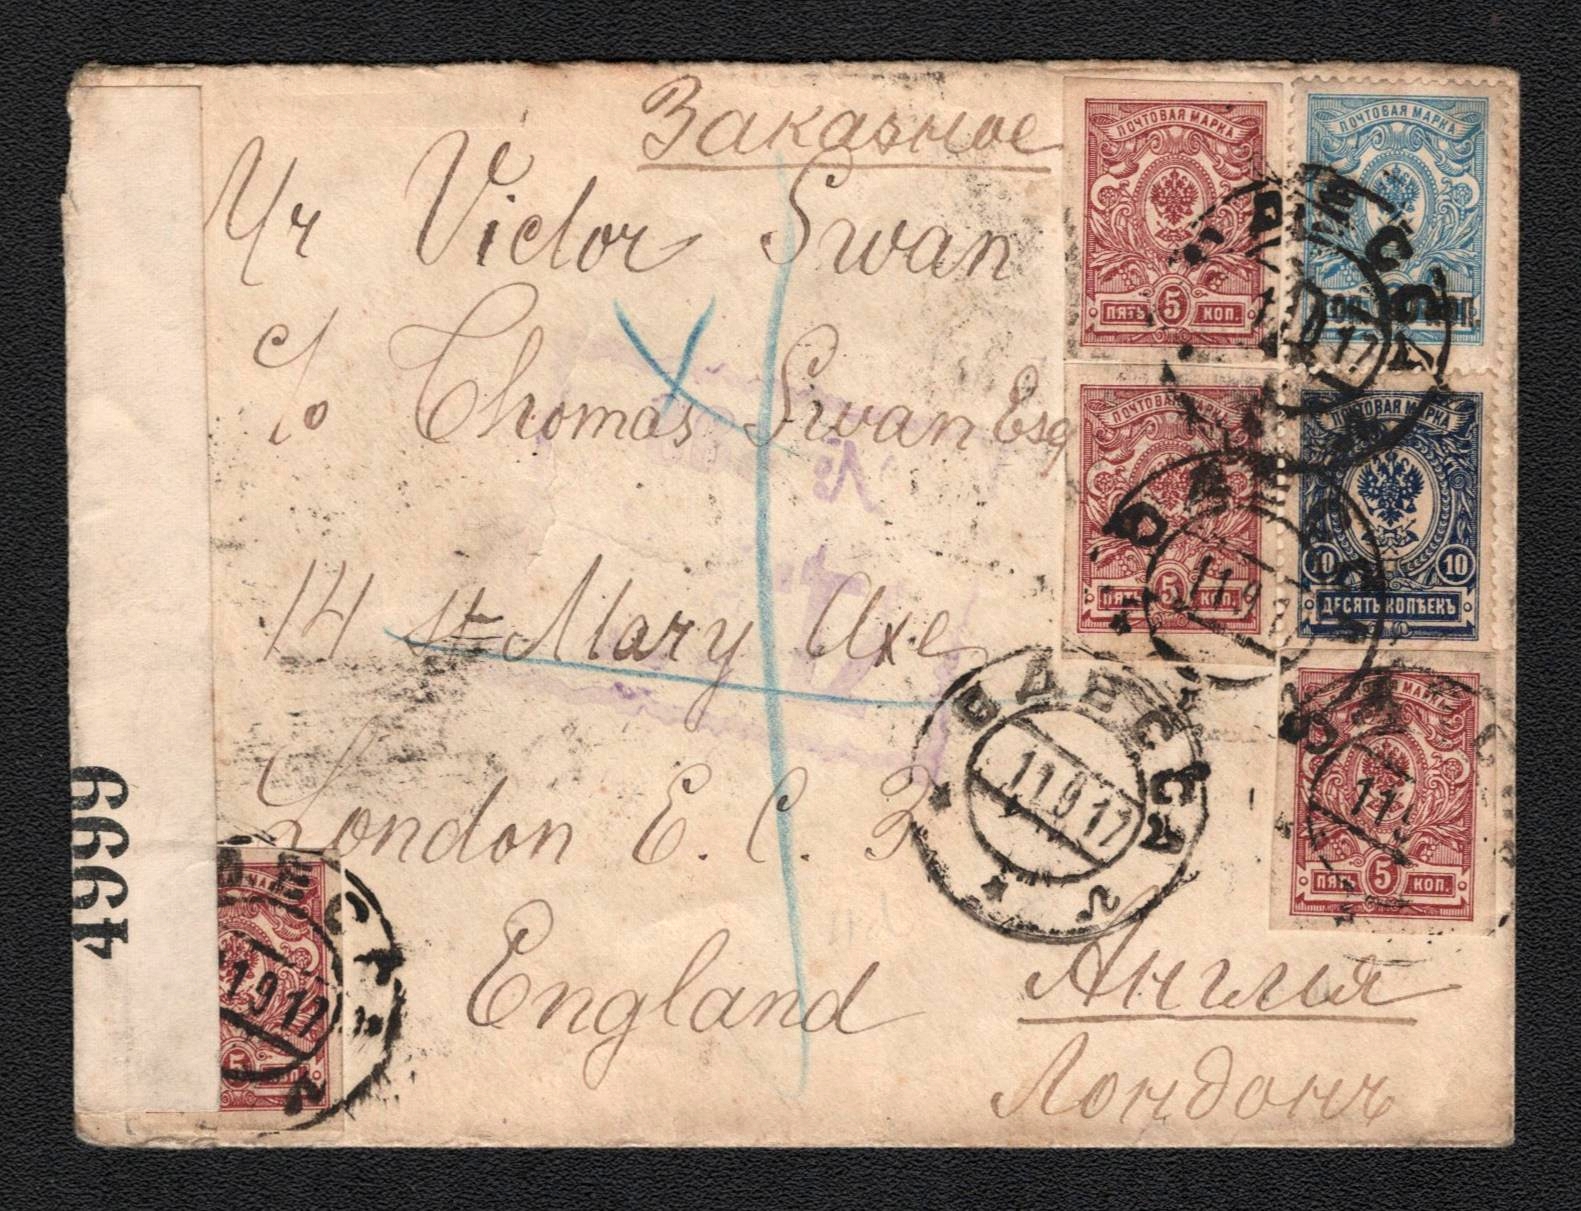 Заказное
Mr Victor Swan
c/o Thomas Swan Esq
14 St Mary Axe
London E. C. 3
England
Англия
Лондонъ
4999
ПОЧТОВАЯ МАРКА
5
ПЯТЬ КОП.
ПОЧТОВАЯ МАРКА
КОП.
ПОЧТОВАЯ МАРКА
5
ПЯТЬ КОП.
ПОЧТОВАЯ МАРКА
10 10
ДЕСЯТЬ КОПѢЕКЪ
МАРКА
5
ПЯТЬ КОП.
5
ОДЕССА
11 9 17
11 9
1 9 17
№